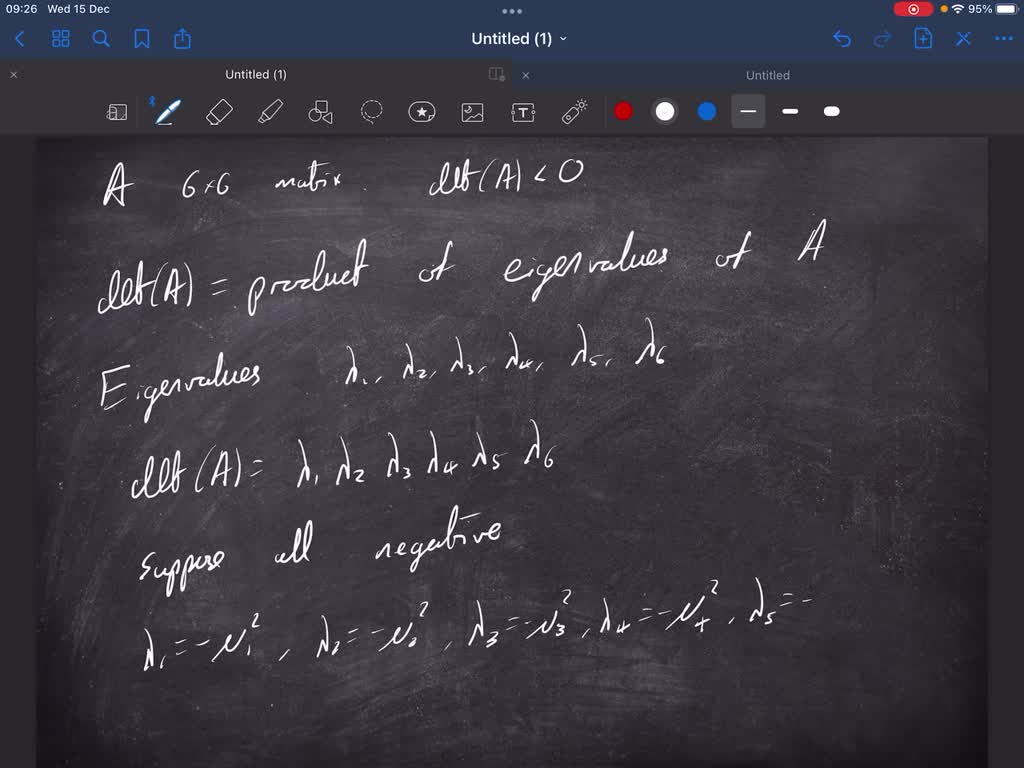 09:26 Wed 15 Dec
95%
Untitled (1)
Untitled (1)
Untitled
A 6×6 matrix det(A) < 0
det(A) = product of eigenvalues of A
Eigenvalues λ₁, λ₂, λ₃, λ₄, λ₅, λ₆
det(A) = λ₁ λ₂ λ₃ λ₄ λ₅ λ₆
Suppose all negative
λ₁ = -μ₁², λ₂ = -μ₂², λ₃ = -μ₃², λ₄ = -μ₄², λ₅ = -